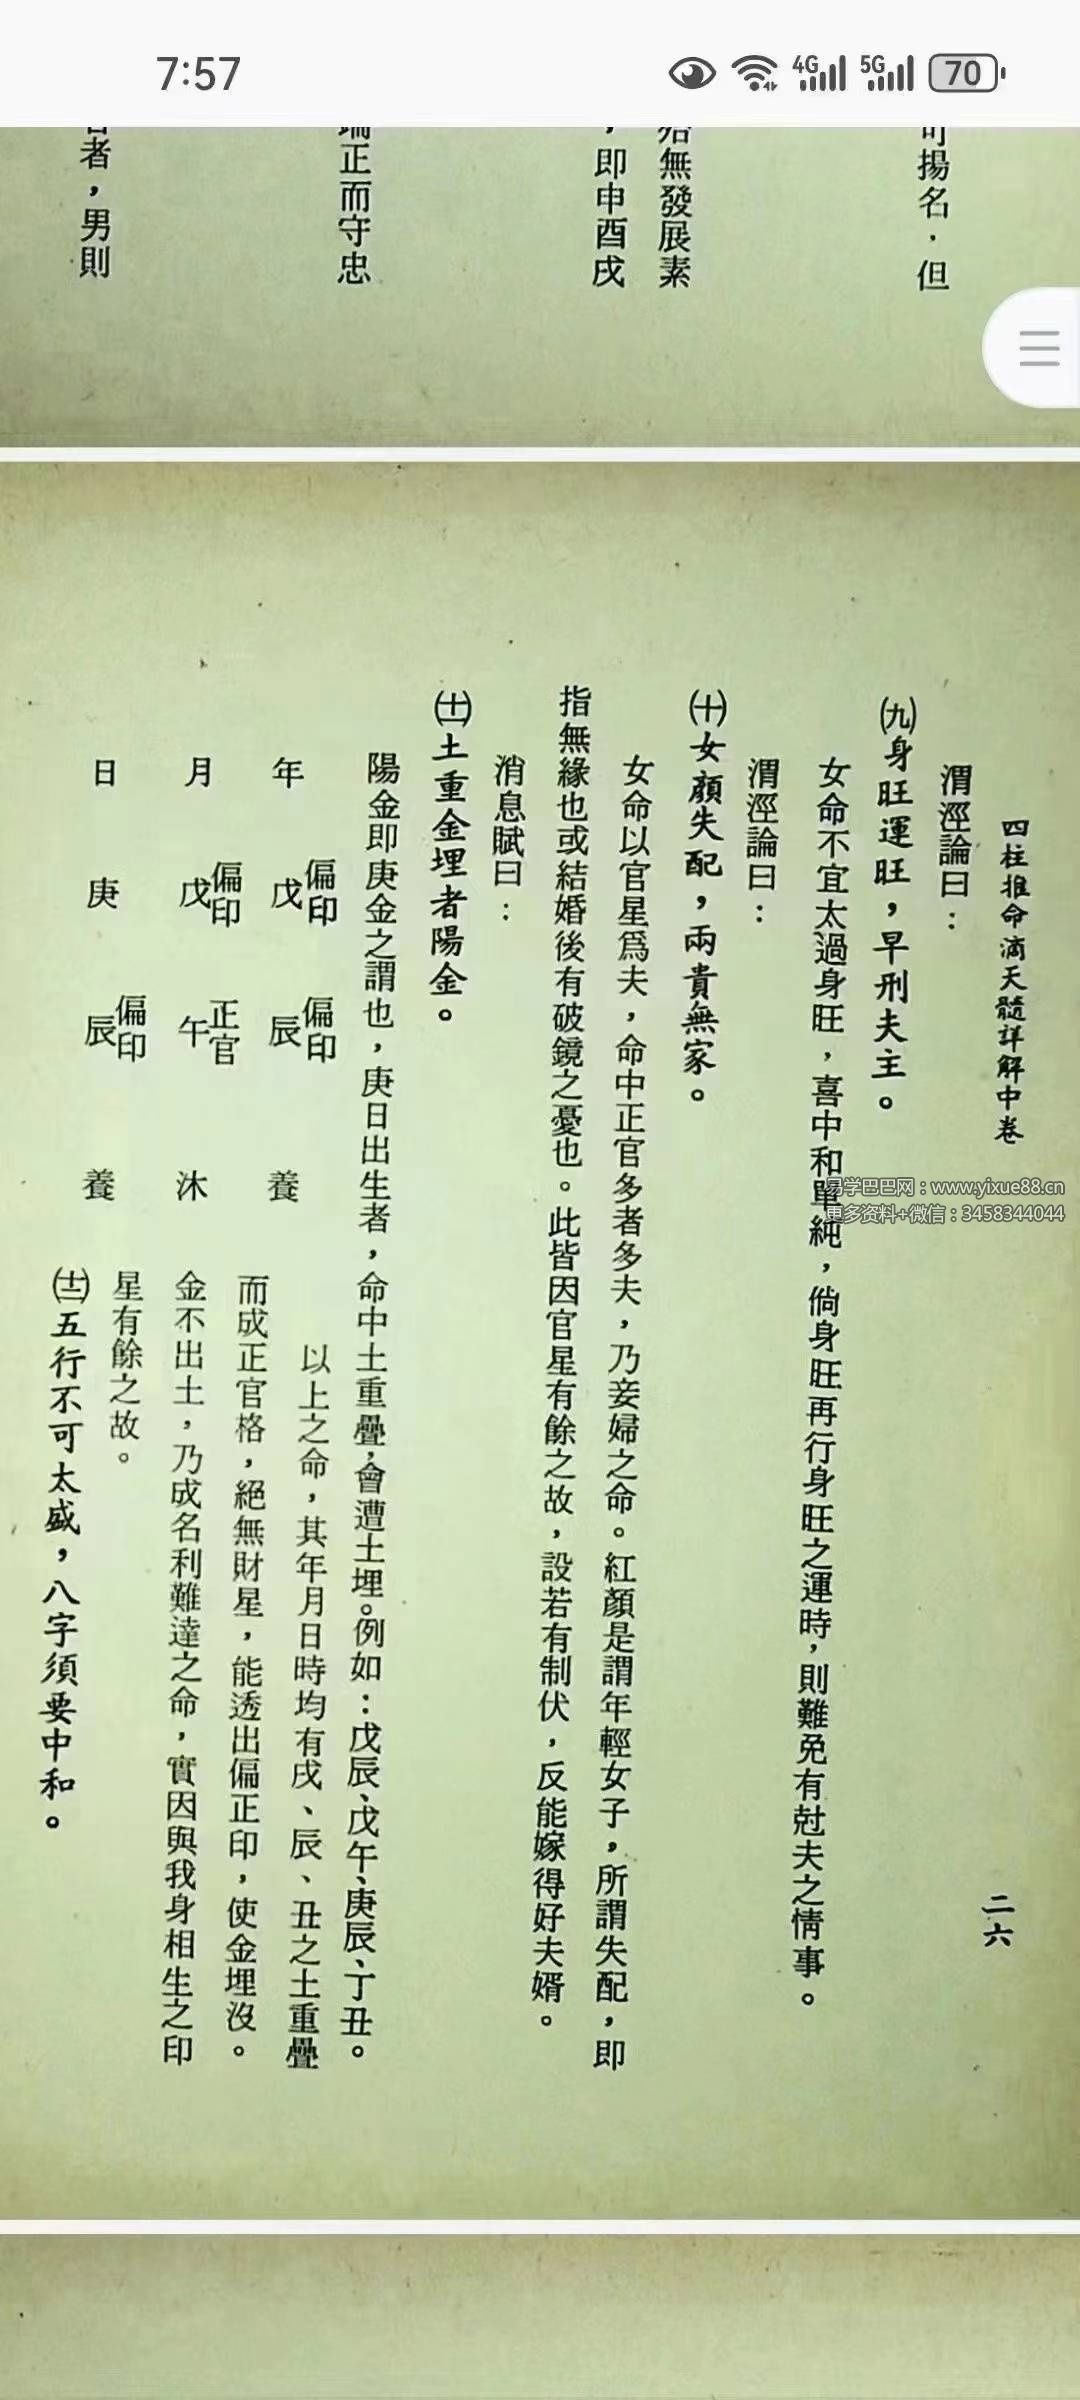 7:57
4G
5G
70
揚名，但
無發展素
，即申酉戌
正而守忠
者，男則
四柱推命滴天髓詳解中卷
二六
渭涇論曰：
㈨身旺運旺，早刑夫主。
女命不宜太過身旺，喜中和單純，倘身旺再行身旺之運時，則難免有尅夫之情事。
渭涇論曰：
㈩女顏失配，兩貴無家。
女命以官星爲夫，命中正官多者多夫，乃妾婦之命。紅顏是謂年輕女子，所謂失配，即
指無緣也或結婚後有破鏡之憂也。此皆因官星有餘之故，設若有制伏，反能嫁得好夫婿。
消息賦曰：
(十一)土重金埋者陽金。
陽金即庚金之謂也，庚日出生者，命中土重疊，會遭土埋。例如：戊辰、戊午、庚辰、丁丑。
年 偏印 戊 偏印 辰 養
月 偏印 戊 正官 午 沐
日 庚 偏印 辰 養
以上之命，其年月日時均有戌、辰、丑之土重疊
而成正官格，絕無財星，能透出偏正印，使金埋沒。
金不出土，乃成名利難達之命，實因與我身相生之印
星有餘之故。
(十二)五行不可太盛，八字須要中和。
易学巴巴网：www.yixue88.cn
更多资料+微信：3458344044